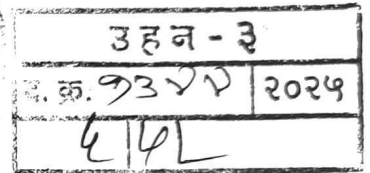 उहन - ३
द. क्र. १३४४ २०२५
५ ५८